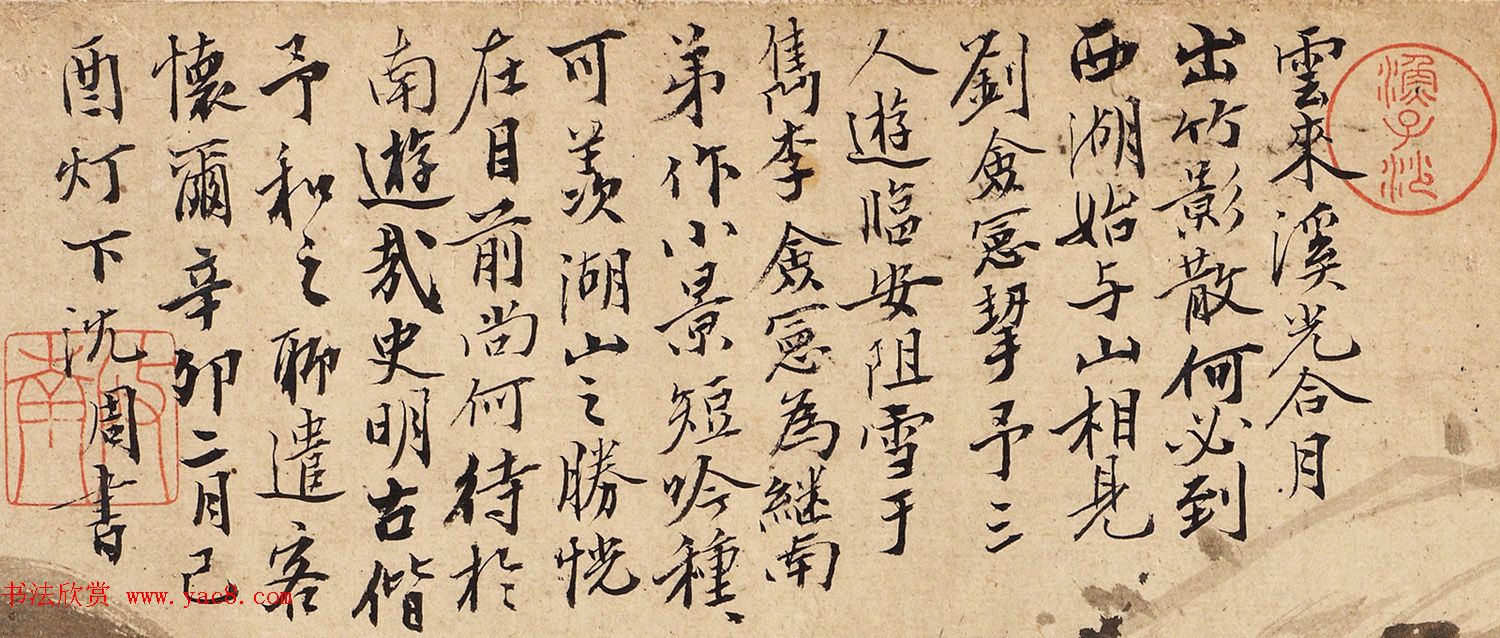 雲來溪光合月
出竹影散何必到
西湖始与山相見
劉僉憲挈予三
人遊臨安阻雪于
雋李僉憲為継南
弟作小景短吟種、
可羨湖山之勝恍
在目前尚何待於
南遊哉史明古偕
予和之聊遣客
懷爾辛卯二月己
酉灯下沈周書
啟南
书法欣赏 www.yac8.com